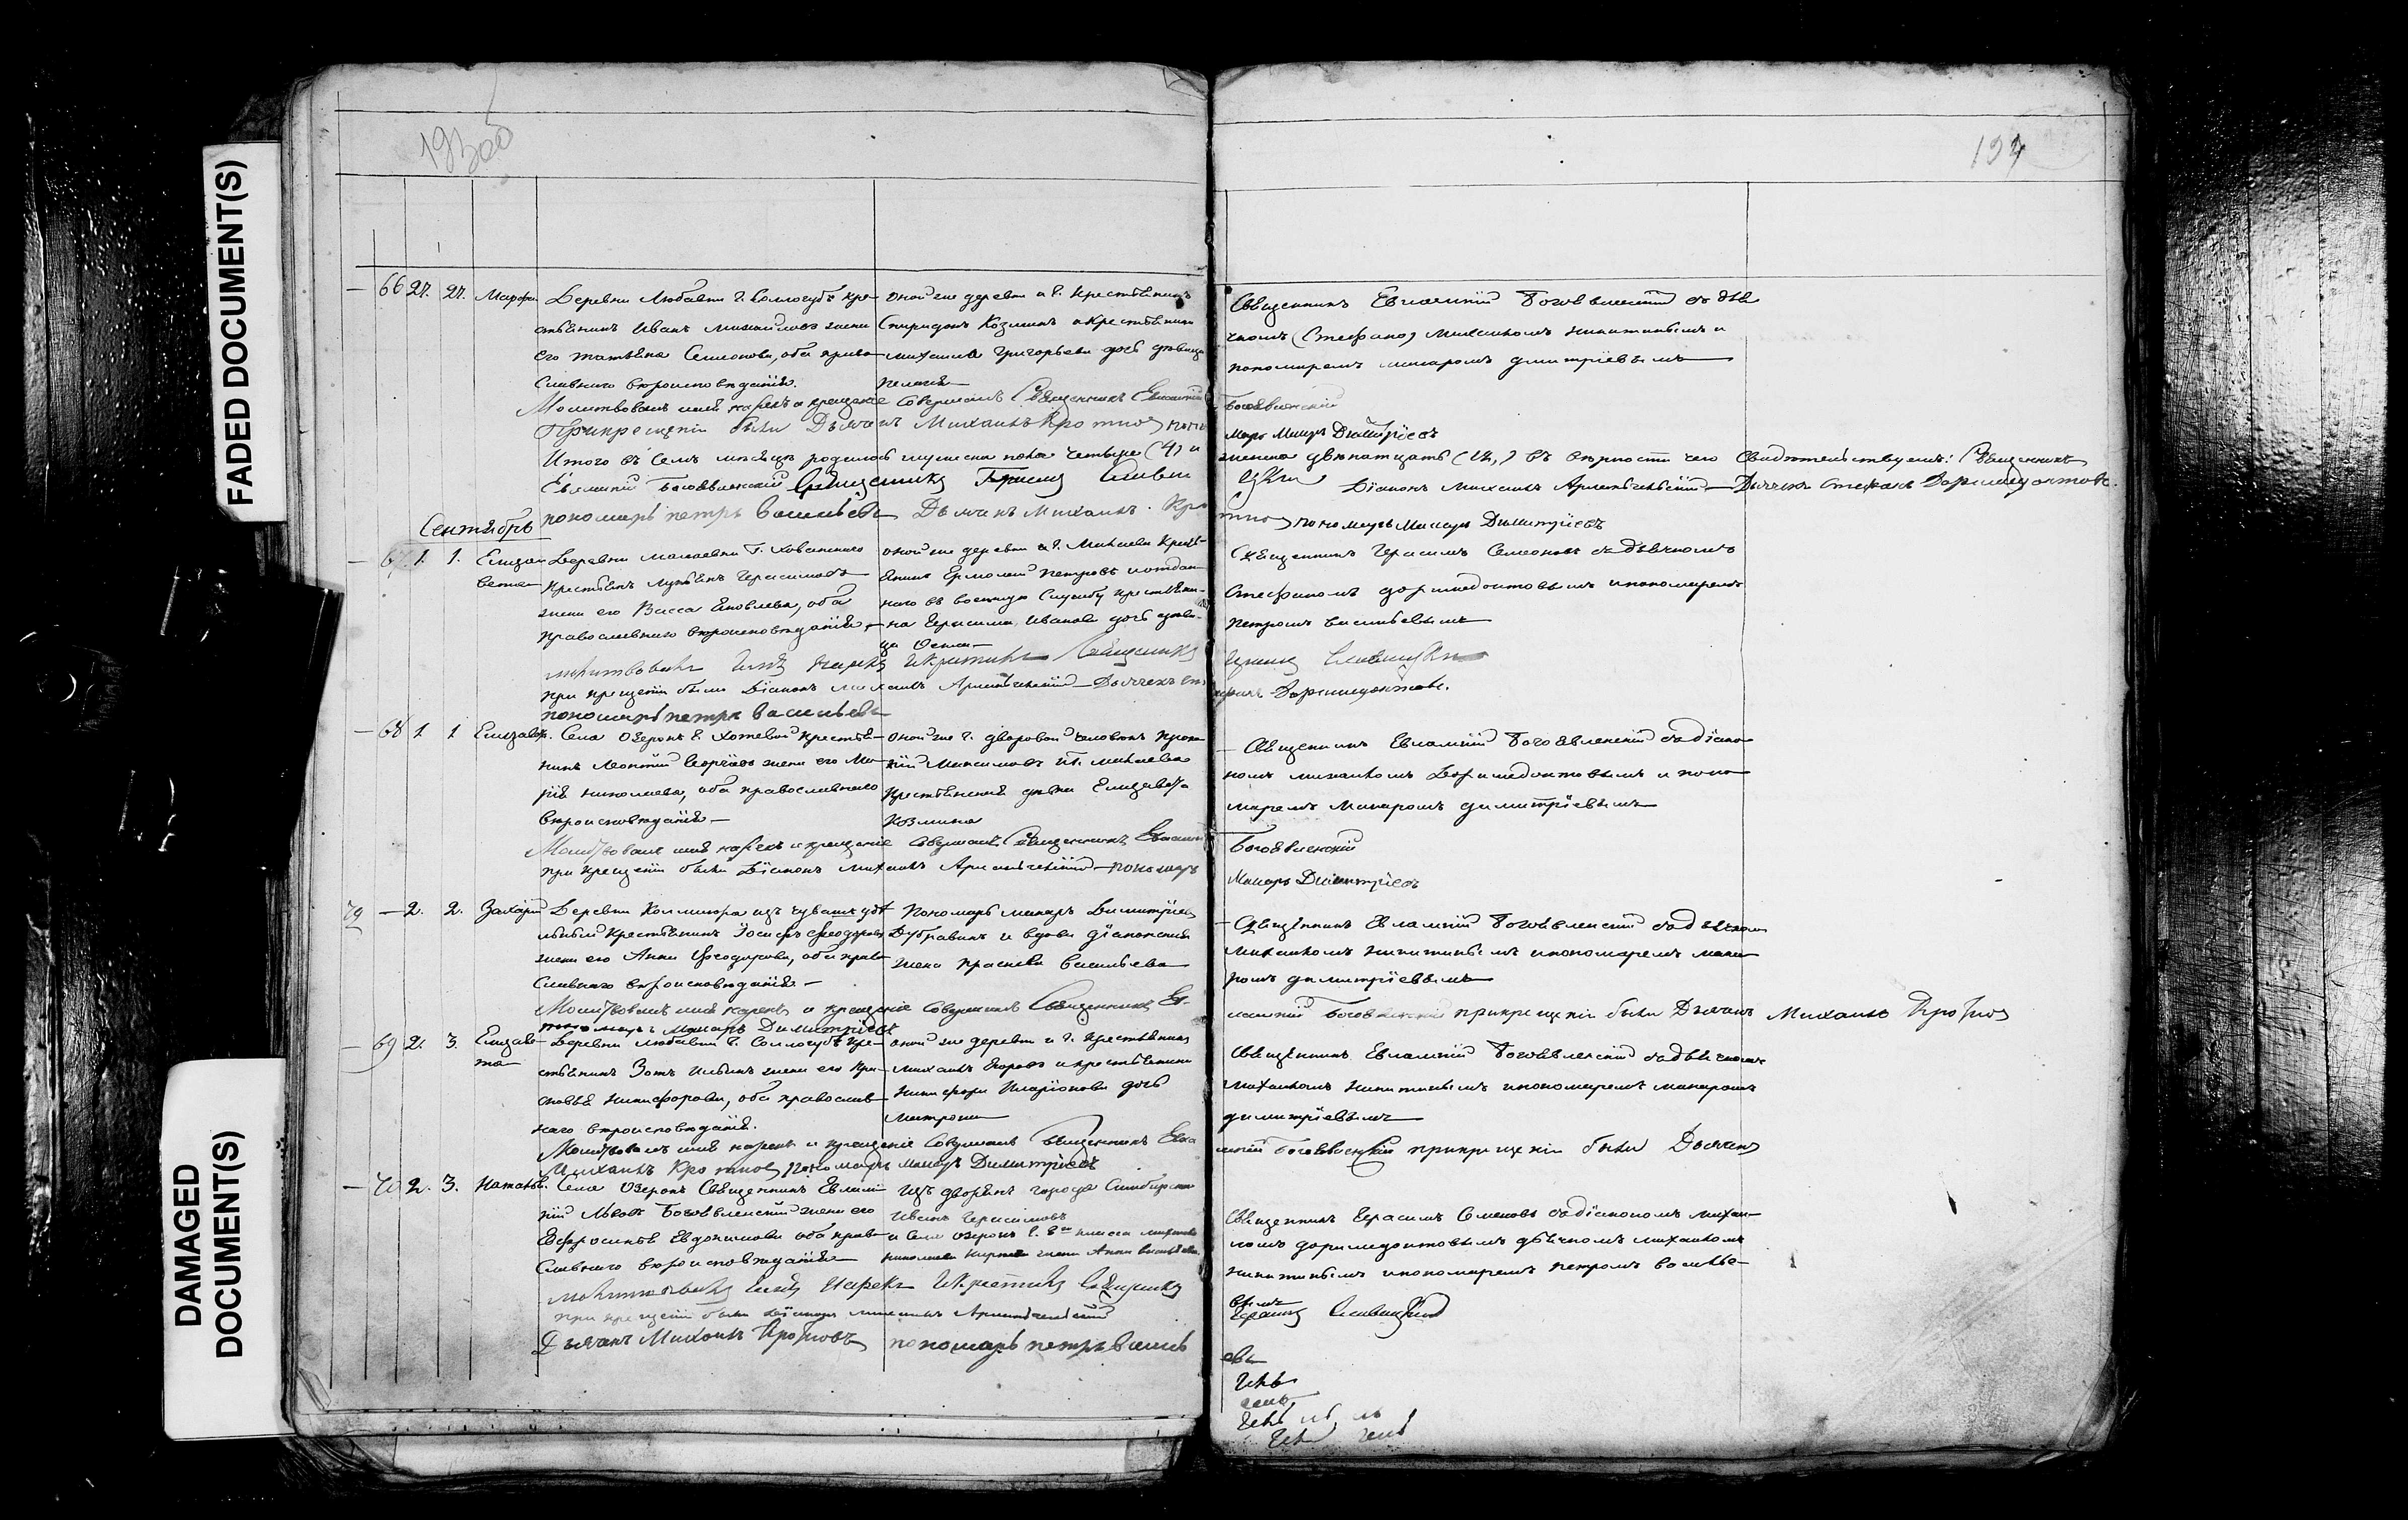 FADED DOCUMENT(S)
DAMAGED
DOCUMENT(S)
193об
194
66 27. 27. Марфа
Деревни Любавки г. Сологубъ кре-
стьянинъ Иванъ Михайловъ жена
его Татьяна Семионова, оба право-
славнаго вѣроисповѣданія.
оной же деревни и г. крестьянинъ
Спиридонъ Козминъ и крестьянина
Михаила Григорьева дочь дѣвица
Пелагія
Священникъ Евлампій Богоявленскій съ дья-
чкомъ (Стефано) Михаиломъ Никитинымъ и
пономаремъ Макаромъ Димитріевымъ
Молитвовалъ имя нарекъ и крещеніе совершалъ Священникъ Евлампій
Богоявленскій
При крещеніи были Дьячекъ Михаилъ Кротковъ поно
марь Макаръ Димитріевъ
Итого въ семъ мѣсяцѣ родилось мужеска пола четыре (4) и
женска двѣнатцать (12,) въ вѣрности чего свидѣтельствуемъ: Священникъ
Евлампій Богоявленскій Священникъ
Діаконъ Михаилъ Дьячекъ Стефанъ Доримедонтовъ.
пономарь Петръ Васильевъ Дьячекъ Михаилъ Кро
тковъ пономарь Макаръ Димитріевъ
Сентябрь
67 1. 1. Елиза
вета
Деревни Малаевки г. Хованскаго
крестьянъ Лукьянъ Герасимовъ
жена его Васса Яковлева, оба
православнаго вѣроисповѣданія
оной же деревни и г. Минаева крест-
янинъ Ермолай Петровъ и отдан-
наго въ военную службу крестьяни-
на Герасима Иванова дочь дѣви-
ца
Священникъ Герасимъ Семеновъ съ дьячкомъ
Стефаномъ Доримедонтовымъ и пономаремъ
Петромъ Васильевымъ
молитвовалъ имя нарекъ и крестилъ Священникъ
при крещеніи были Діаконъ Михаилъ Дьячекъ Сте
фанъ Доримедонтовъ.
пономарь Петръ Васильевъ
68 1 1 Елизавета.
Села Озерокъ г. Хотевой крестья-
нинъ Леонтій Георгіевъ жена его Ма-
рія Николаева, оба православнаго
вѣроисповѣданія
оной же г. дворовой человѣкъ Проко
пій Максимовъ и г. Минаева
крестьянская дѣвка Елизавета
Козмина
Священникъ Евлампій Богоявленскій съ діако-
номъ Михаиломъ Доримедонтовымъ и поно-
маремъ Макаромъ Димитріевымъ
Молитвовалъ имя нарекъ и крещеніе совершалъ Священникъ Евлампій
Богоявленскій
при крещеніи были Діаконъ Михаилъ пономарь
Макаръ Димитріевъ
29 2. 2. Захарій
Деревни изъ чувашъ удѣ
льный крестьянинъ Іосифъ Феодоровъ
жена его Анна Феодорова, оба право
славнаго вѣроисповѣданія
Пономарь Макаръ Димитріевъ
Дубравинъ и вдова діаконская
жена Праскева Васильева
Священникъ Евлампій Богоявленскій съ дьячкомъ
Михаиломъ Никитинымъ и пономаремъ Мака
ромъ Димитріевымъ
Молитвовалъ имя нарекъ и крещеніе совершалъ Священникъ Ев-
лампій Богоявленскій при крещеніи были Дьячекъ Михаилъ Кротковъ
пономарь Макаръ Димитріевъ
69 2. 3. Елизаве
та
Деревни Любавки г. Сологубъ кре-
стьянинъ Зотъ Ильинъ жена его
Никифорова, оба православ-
наго вѣроисповѣданія.
оной же деревни и г. крестьянинъ
Михаилъ Егоровъ и крестьянина
Никифора Иларіонова дочь
Матрона
Священникъ Евлампій Богоявленскій съ дьячкомъ
Михаиломъ Никитинымъ и пономаремъ Макаромъ
Димитріевымъ
Молитвовалъ имя нарекъ и крещеніе совершалъ Священникъ Евла
мпій Богоявленскій при крещеніи были Дьячекъ
Михаилъ Кротковъ пономарь Макаръ Димитріевъ
70 2. 3. Наталья.
Села Озерокъ Священникъ Евлам-
пій Львовъ Богоявленскій жена его
Евфросинія Евдокимова оба право
славнаго вѣроисповѣданія
изъ дворянъ города Симбирска
Иванъ Герасимовъ
и села Озерокъ г. 8го класса
Николаева жена Анна Васильева
Священникъ Герасимъ Семеновъ съ діакономъ Михаи-
ломъ Доримедонтовымъ дьячкомъ Михаиломъ
Никитинымъ и пономаремъ Петромъ Василье-
вымъ
молитвовалъ имя нарекъ и крестилъ Священникъ
Герасимъ
при крещеніи были Діаконъ Михаилъ
Дьячекъ Михаилъ Кротковъ пономарь Петръ Василь
евъ